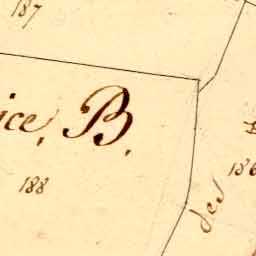 187
ice, B.
188
des